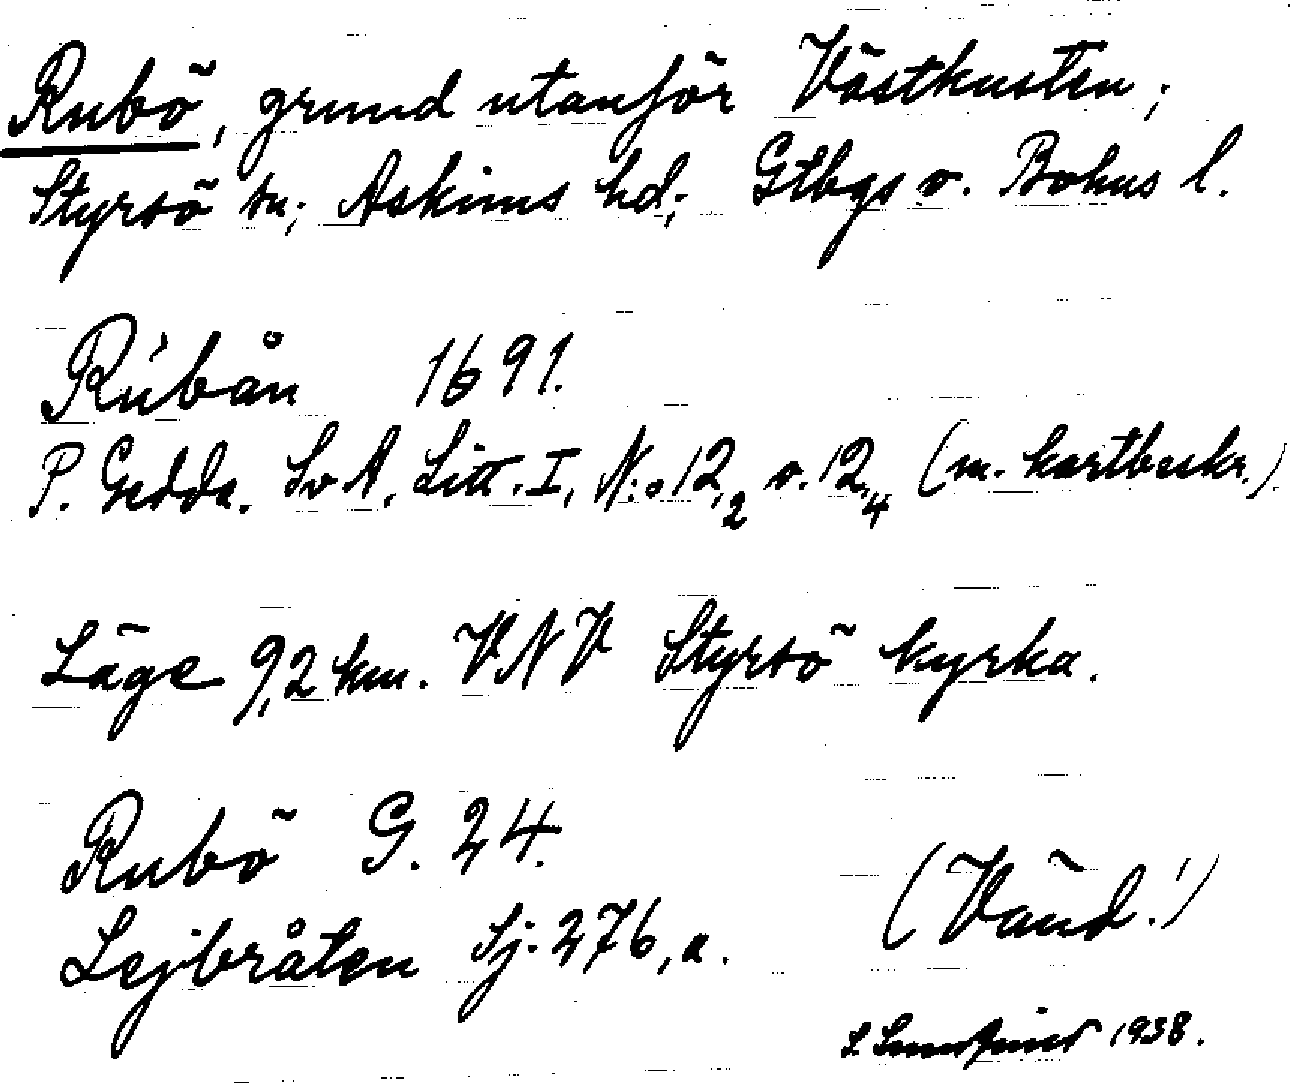 Rubö, grund utanför Västkusten;
Styrsö sn; Askims hd; Gtbgs o. Bohus l.
Rúbån 1691.
P. Gedda. SvA. Litt. I, N:o 12,2 o. 12,4 (m. kartbeskr.)
Läge 9,2 km. VNV Styrsö kyrka.
Rubö G. 24.
Lejbråten Sj. 276, a.
(Vänd!)
1938.